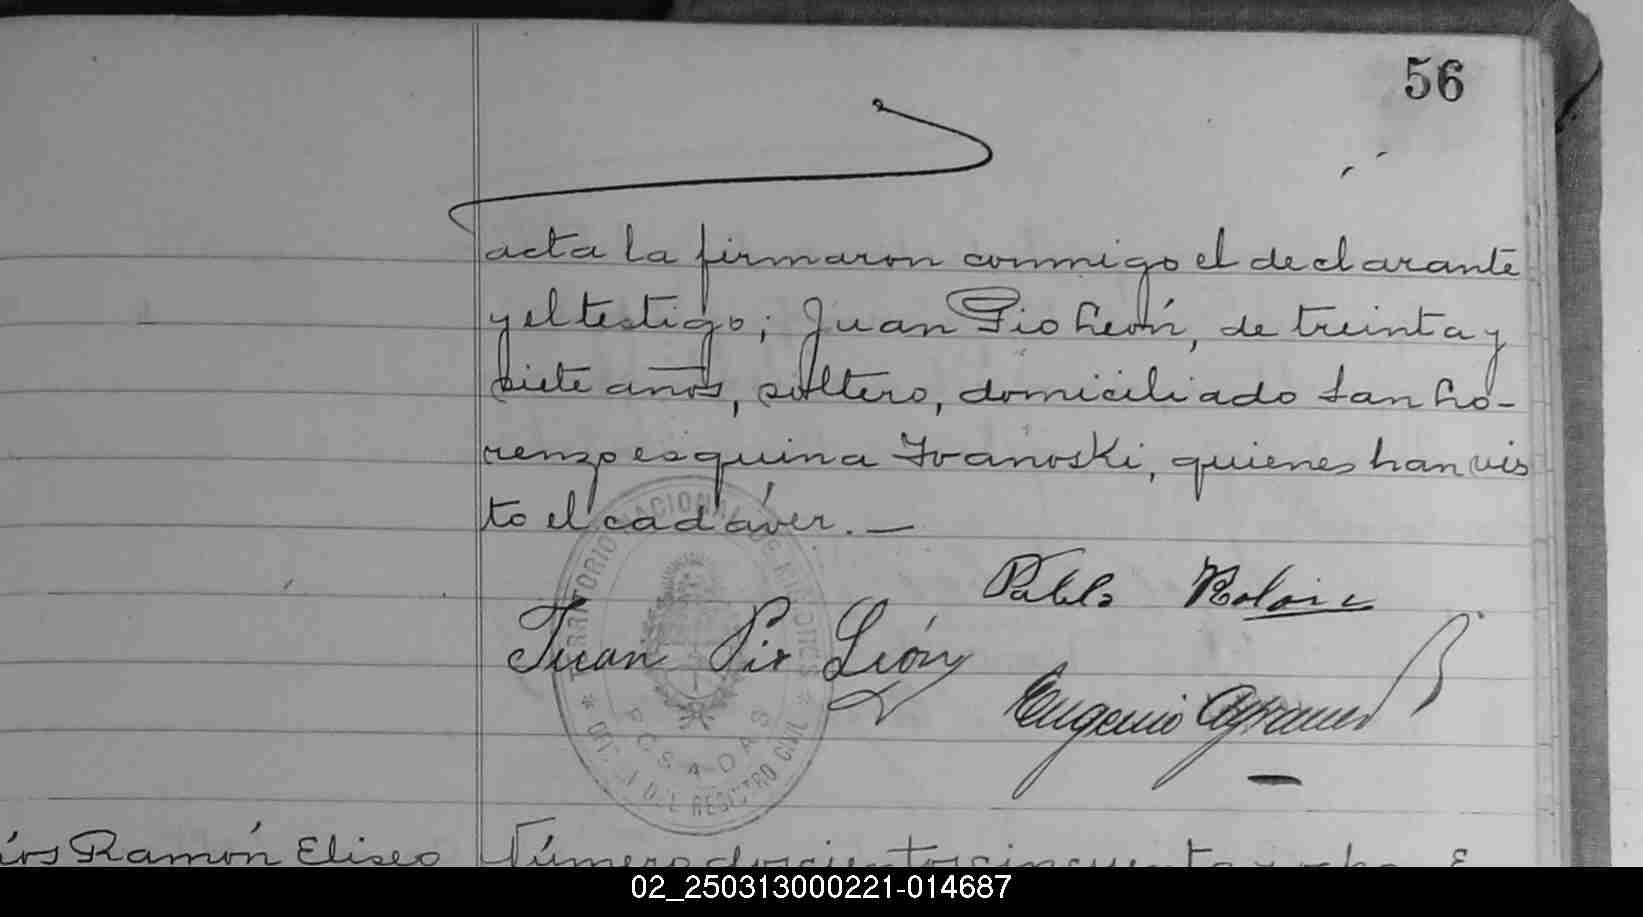 56
acta la firmaron conmigo el declarante
y el testigo; Juan Pio León, de treinta y
siete años, soltero, domiciliado San Lo-
renzo esquina Ivanoski, quienes han vis
to el cadáver. —
Pablo
Juan Pio León
Eugenio
TERRITORIO NACIONAL DE MISIONES
POSADAS
OFC. 1 DEL REGISTRO CIVIL
Ramón Eliseo
Número doscientos cincuenta y ocho. E
02_250313000221-014687